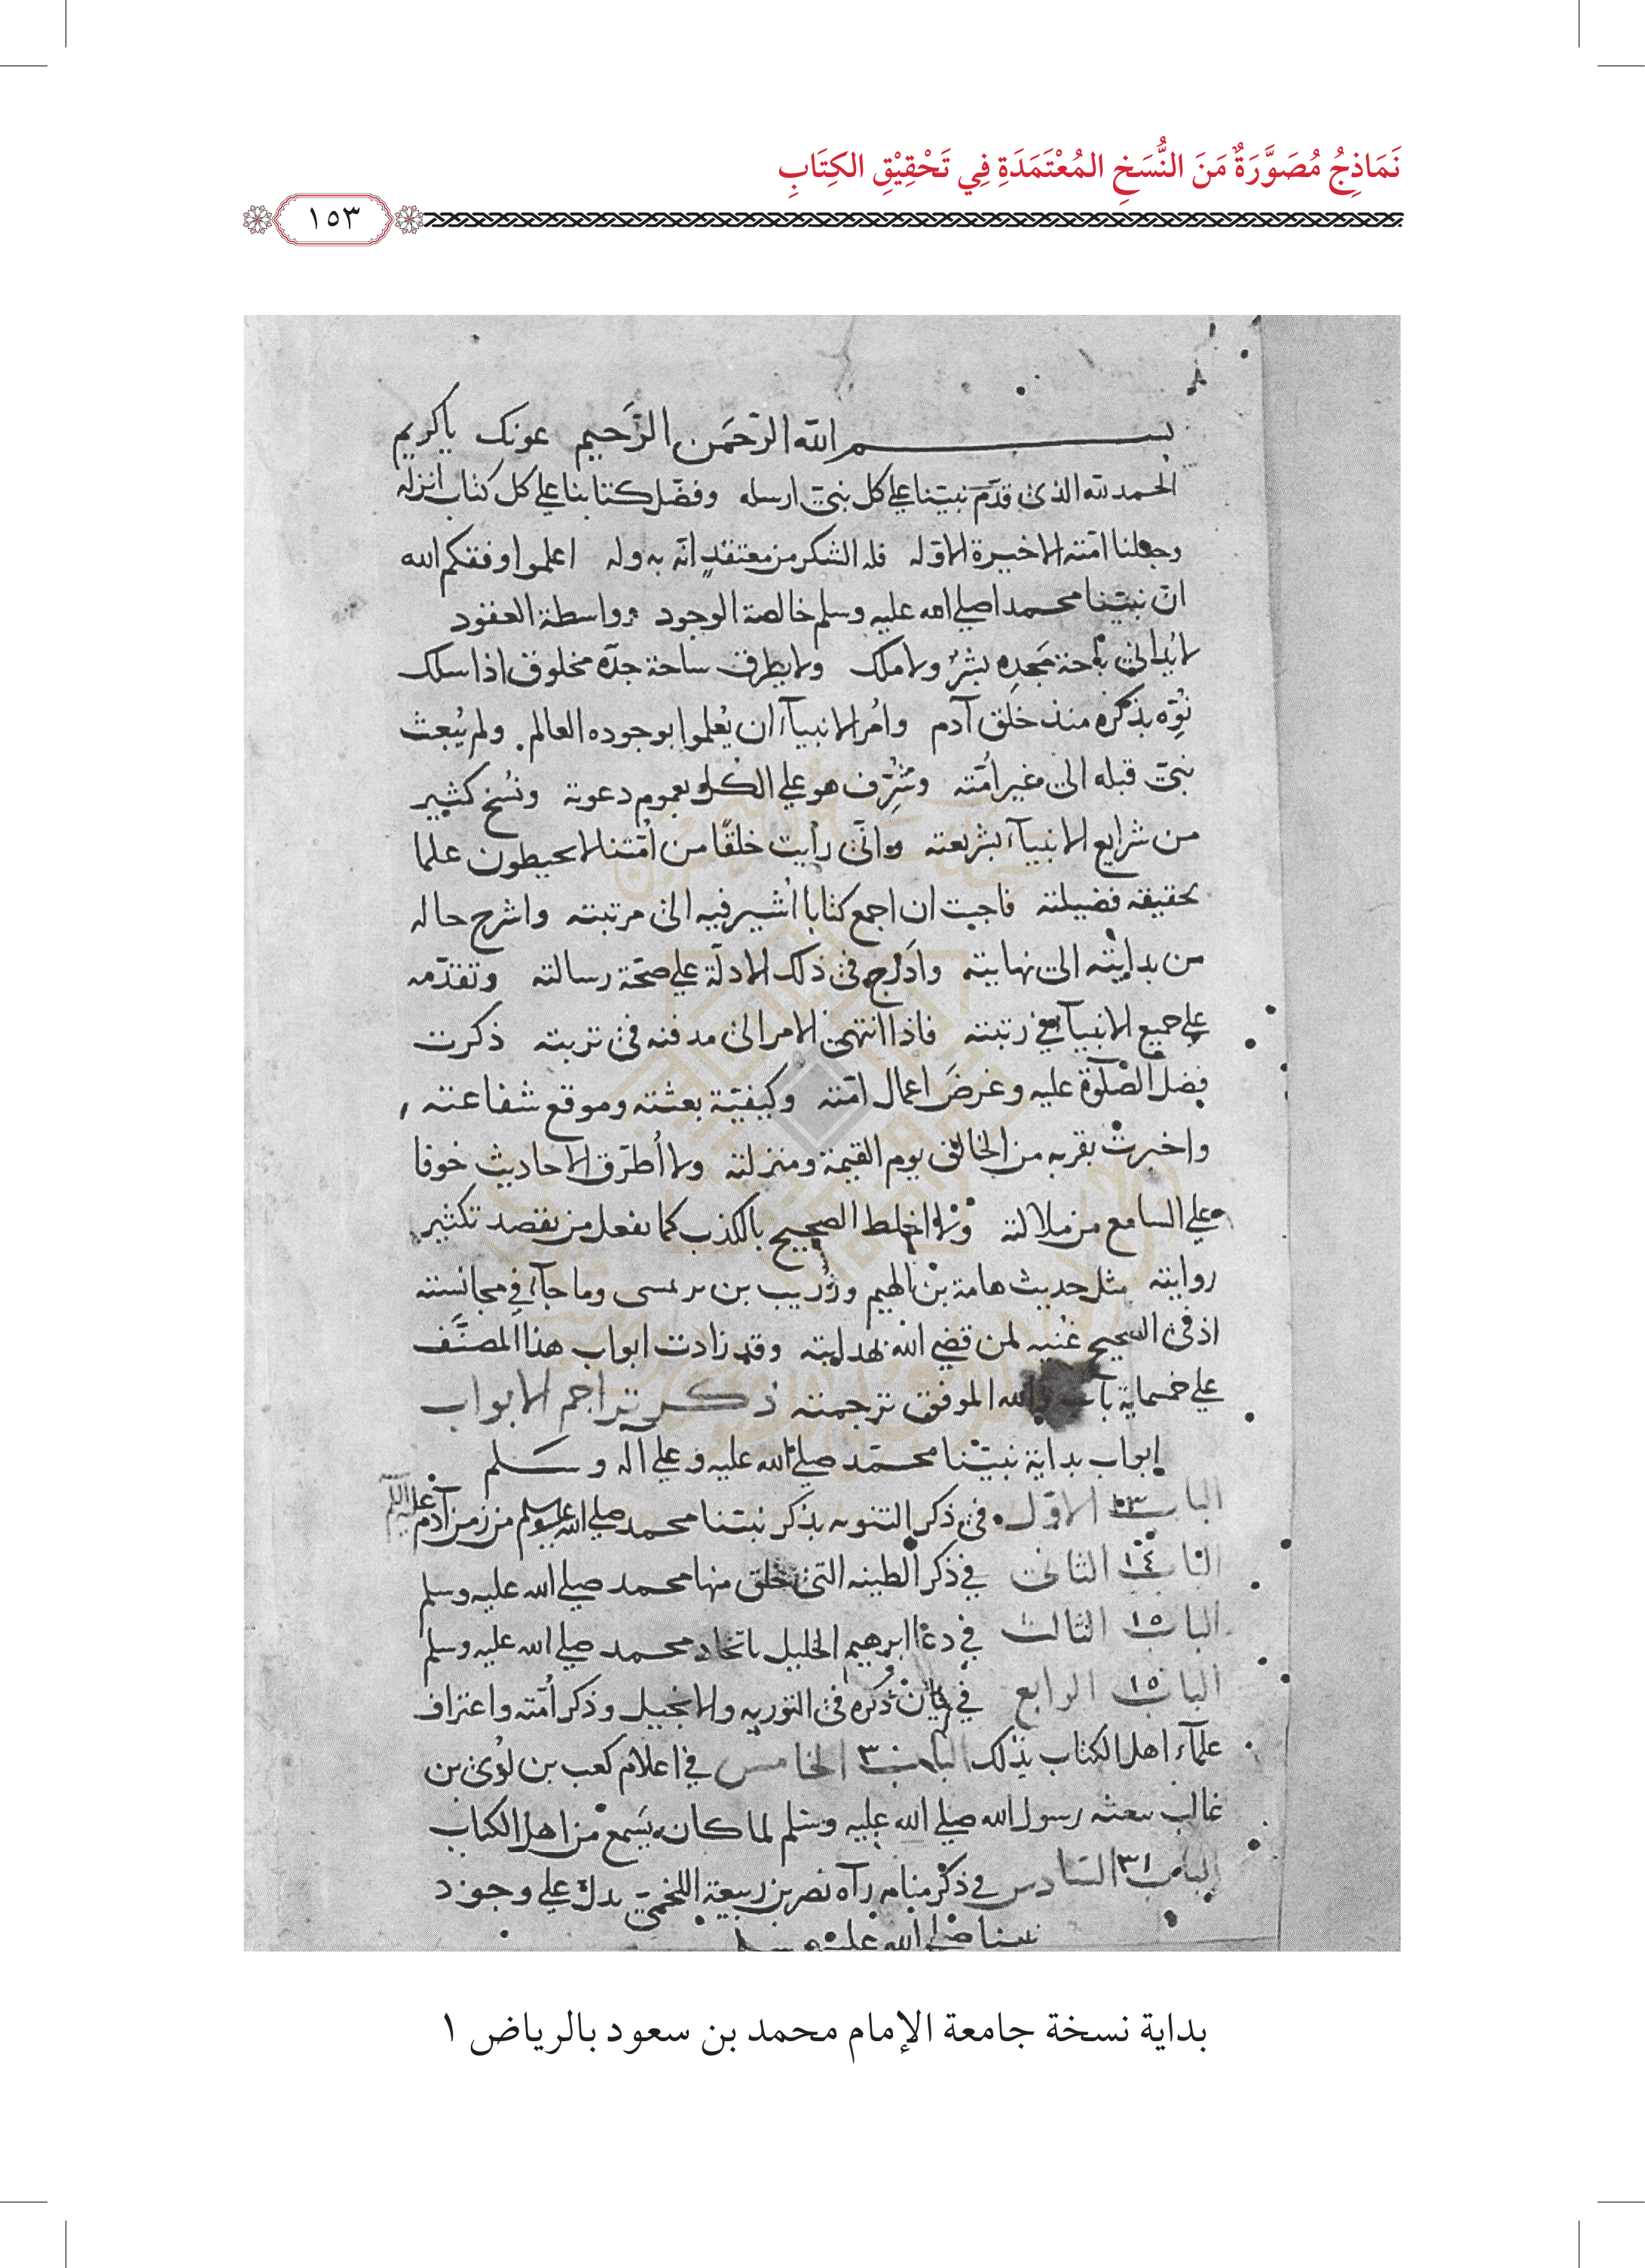 نَمَاذِجُ مُصَوَّرَةٌ مَنَ النُّسَخِ المُعْتَمَدَةِ فِي تَحْقِيْقِ الكِتَابِ
١٥٣
بسم الله الرّحمَن الرَّحيم عونك ياكريم
الحمد لله الذى قدّم نبيّنا على كل نبىّ ارسله وفضّل كتابنا على كل كتاب انزله
وجعلنا امّته الاخيرة الاوّله فله الشكر من معتقدٍ انّه به وله اعلموا وفقكم الله
انّ نبيّنا محمدا صلى الله عليه وسلم خالصة الوجود وواسطة العقود
لا يُدانى باحة مَجدِه بشرٌ ولا ملك ولا يطرق ساحة جدّه مخلوق اذا سلك
نُوّه بذكره منذ خلق آدم وامُر الانبيآء ان يُعلموا بوجوده العالم ولم يُبعث
نبىّ قبله الى غير امُّته وشُرِّف هو على الكُل بعموم دعوته ونُسخ كثير
من شرايع الانبيآء بشريعته وانّى رأيت خلقًا من امُّتنا لا يحيطون علما
بحقيقه فضيلته فاجبت ان اجمع كتابا اُشير فيه الى مرتبته واشرح حاله
من بدايته الى نهايته واَدرج فى ذلك الادلّة على صحّة رسالته وتقدّمه
على جميع الانبيآء فى رتبته فاذا انتهى الامر الى مدفنه فى تربته ذكرت
فضل الصّلوة عليه وعَرضَ اعمال امّته وكيفيّة بعثته وموقع شفاعته
واخبرتُ بقربه من الخالق يوم القيمة ومنزلته ولا اُطرّق الاحاديث خوفا
على السامع من ملالته ولا اخلط الصحيح بالكذب كما يفعل من يقصد تكثير
روايته مثل حديث هامة بن الهيم وزُريب بن برثمسى وما جآء فى مجانسته
اذ فى الصحيح غُنيه لمن قضى الله بهدايته وقد زادت ابواب هذا المصنَّف
على خمسماية باب والله الموفق ترجمته ذكر تراجم الابواب
ابواب بداية نبيّنا محمّد صلى الله عليه وعلى اله وسلم
الباب الاوّل فى ذكر التنويه بذكر نبيّنا محمد صلى الله عليه وسلم من زمن آدم عليه السلم
الباب ١٤ الثانى فى ذكر الطينه التى خلق منها محمد صلى الله عليه وسلم
الباب ١٥ الثالث فى دعآ ابرهيم الخليل باتخاد محمد صلى الله عليه وسلم
الباب ١٥ الرابع فى بيان ذكره فى التوريه والانجيل وذكر اُمّته واعتراف
علمآء اهل الكتاب بذلك الباب ٣ الخامس فى اعلام كعب بن لؤى بن
غالب ببعثه رسول الله صلى الله عليه وسلم لما كان يَسمع من اهل الكتاب
الباب ٣١ السادس فى ذكر منام رآه نصر بن ربيعة اللخمىّ يدلّ على وجود
نبينا صلى الله عليه وسلم
بداية نسخة جامعة الإمام محمد بن سعود بالرياض ١